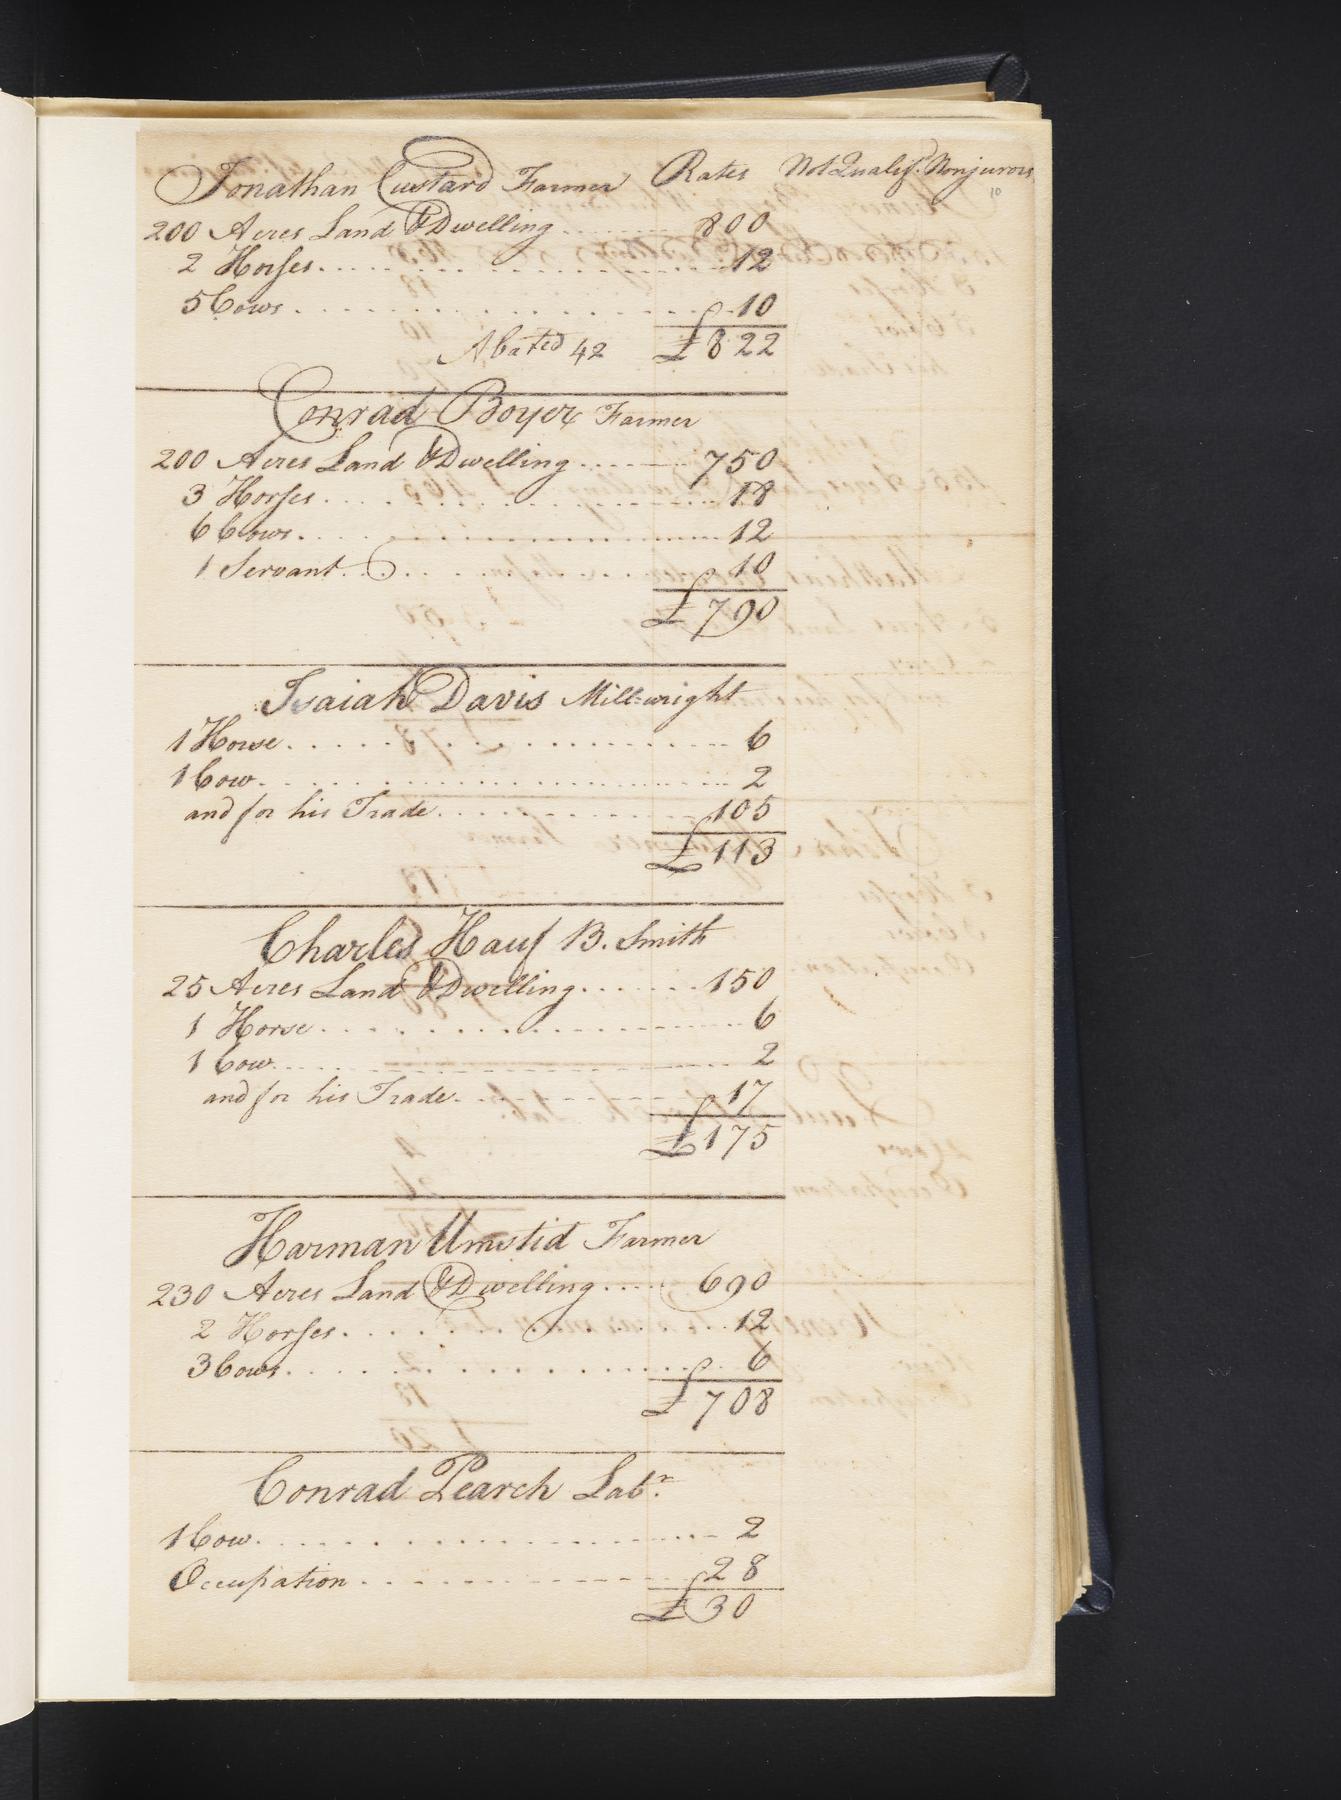 Jonathan Custard Farmer Rates Not Qualif.d Nonjurors
10
200 Acres Land & Dwelling ....... 800
2 Horses ....... 12
5 Cows ....... 10
Abated 42 £822
Conrad Boyer Farmer
200 Acres Land & Dwelling ....... 750
3 Horses ....... 18
6 Cows ....... 12
1 Servant ....... 10
£790
Isaiah Davis Mill=wright
1 Horse ....... 6
1 Cow ....... 2
and for his Trade ....... 105
£113
Charles Hauf B. Smith
25 Acres Land & Dwelling ....... 150
1 Horse ....... 6
1 Cow ....... 2
and for his Trade ....... 17
£175
Harman Umstid Farmer
230 Acres Land & Dwelling ....... 690
2 Horses ....... 12
3 Cows ....... 6
£708
Conrad Pearch Lab.r
1 Cow ....... 2
Occupation ....... 28
£30